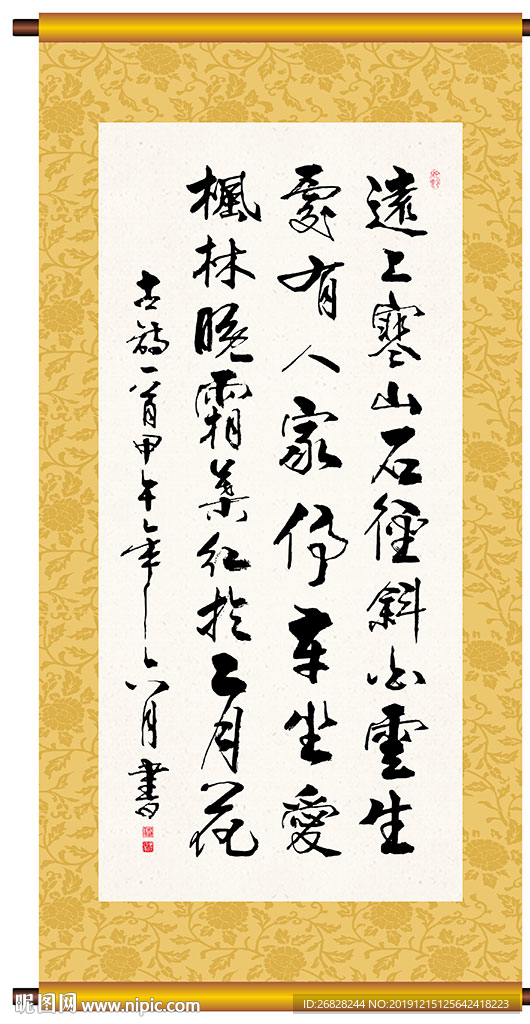 遠上寒山石徑斜白雲生
處有人家停車坐愛
楓林晚霜葉紅於二月花
古詩一首甲午年六月書
昵图网 www.nipic.com
ID:26828244 NO:20191215125642418223